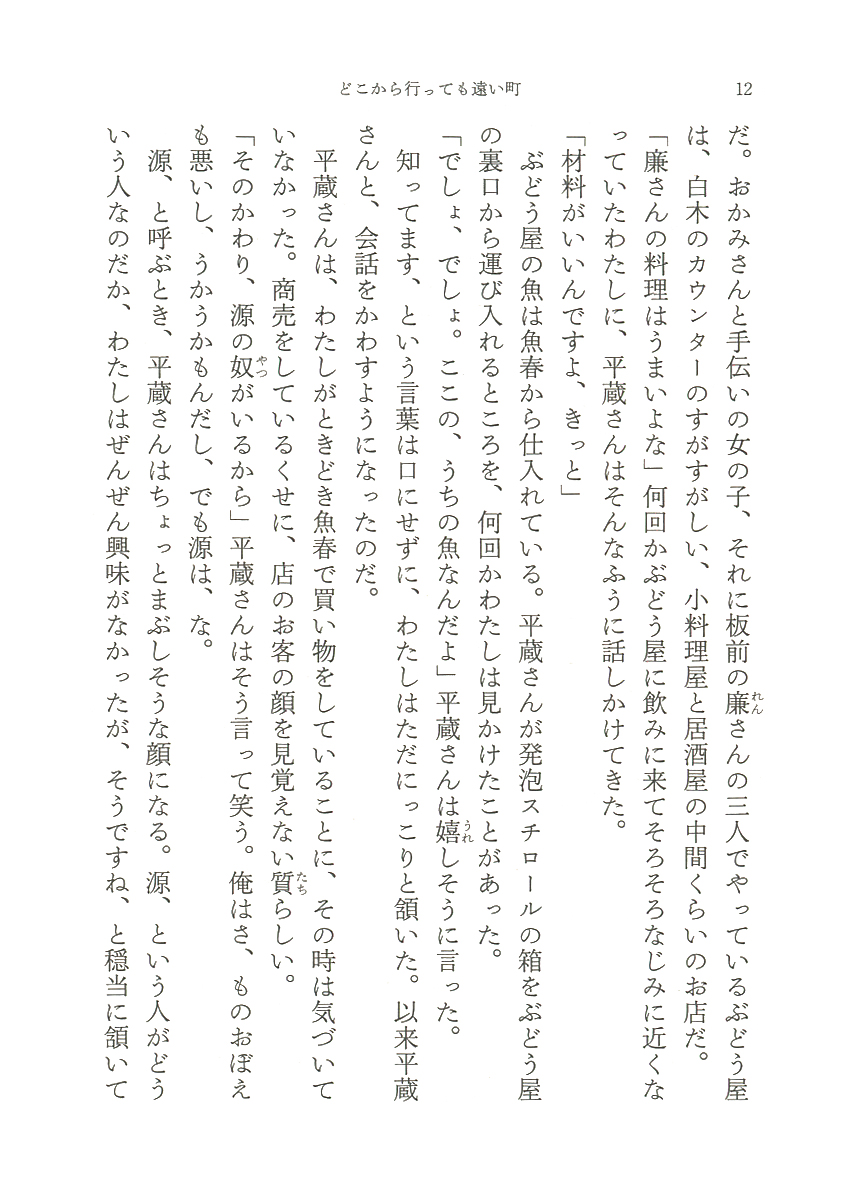 どこから行っても遠い町
12
だ。おかみさんと手伝いの女の子、それに板前の廉さんの三人でやっているぶどう屋
れん
は、白木のカウンターのすがすがしい、小料理屋と居酒屋の中間くらいのお店だ。
「廉さんの料理はうまいよな」何回かぶどう屋に飲みに来てそろそろなじみに近くな
っていたわたしに、平蔵さんはそんなふうに話しかけてきた。
「材料がいいんですよ、きっと」
ぶどう屋の魚は魚春から仕入れている。平蔵さんが発泡スチロールの箱をぶどう屋
の裏口から運び入れるところを、何回かわたしは見かけたことがあった。
「でしょ、でしょ。ここの、うちの魚なんだよ」平蔵さんは嬉しそうに言った。
うれ
知ってます、という言葉は口にせずに、わたしはただにっこりと頷いた。以来平蔵
さんと、会話をかわすようになったのだ。
平蔵さんは、わたしがときどき魚春で買い物をしていることに、その時は気づいて
いなかった。商売をしているくせに、店のお客の顔を見覚えない質らしい。
たち
「そのかわり、源の奴がいるから」平蔵さんはそう言って笑う。俺はさ、ものおぼえ
やつ
も悪いし、うかうかもんだし、でも源は、な。
源、と呼ぶとき、平蔵さんはちょっとまぶしそうな顔になる。源、という人がどう
いう人なのだか、わたしはぜんぜん興味がなかったが、そうですね、と穏当に頷いて